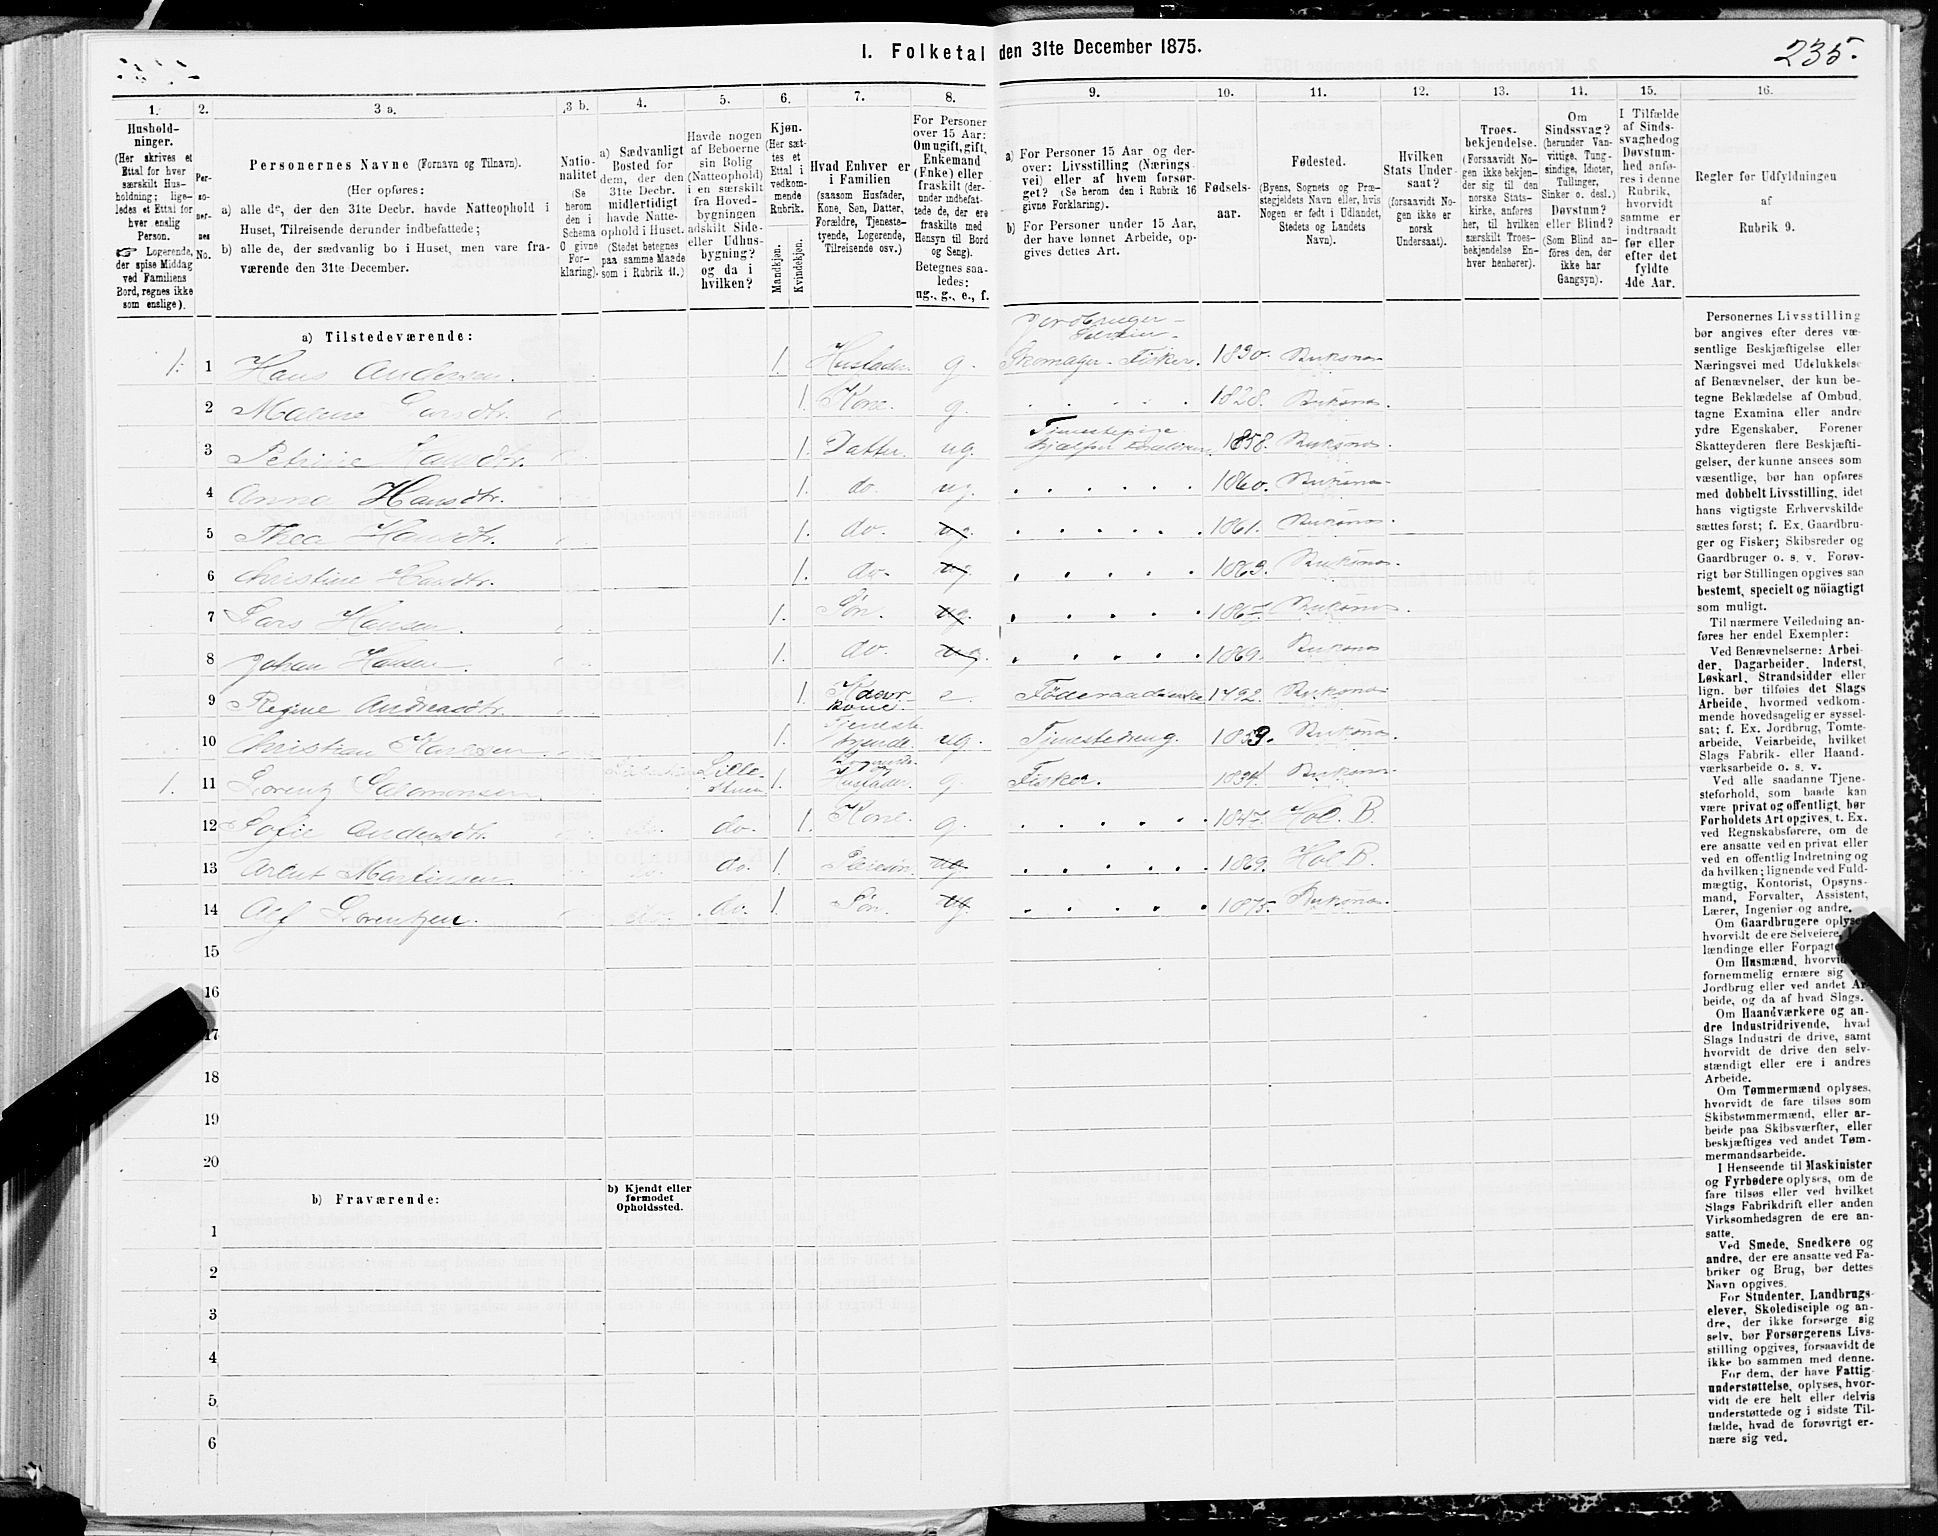 I. Folketal den 31te December 1875.
235.
1.
Hushold-
ninger.
(Her skrives et
Ettal for hver
særskilt Hus-
holdning; lige-
ledes et Ettal for
hver enslig
Person.
☞ Logerende,
der spise Middag
ved Familiens
Bord, regnes ikke
som enslige).
2.
Per-
so-
ner-
nes
No.
3 a.
Personernes Navne (Fornavn og Tilnavn).
(Her opføres:
a) alle de, der den 31te Decbr. havde Natteophold i
Huset, Tilreisende derunder indbefattede;
b) alle de, der sædvanlig bo i Huset, men vare fra-
værende den 31te December.
3 b.
Natio-
nalitet
(Se
herom
den i
Schema
O givne
For-
klaring).
4.
a) Sædvanligt
Bosted for
dem, der den
31te Decbr.
midlertidigt
havde Natte-
ophold i Huset.
(Stedet betegnes
paa samme Maade
som i Rubrik 11.)
5.
Havde nogen
af Beboerne
sin Bolig
(Natteophold)
i en særskilt
fra Hoved-
bygningen
adskilt Side-
eller Udhus-
bygning?
og da i
hvilken?
6.
Kjøn.
(Her sæt-
tes et
Ettal i
vedkom-
mende
Rubrik.
Mandkjøn.
Kvindekjøn.
7.
Hvad Enhver er
i Familien
(saasom Husfader,
Kone, Søn, Datter,
Forældre, Tjeneste-
tyende, Logerende,
Tilreisende osv.)
8.
For Personer
over 15 Aar:
Om ugift, gift,
Enkemand
(Enke) eller
fraskilt (der-
under indbefat-
tede de, der ere
fraskilte med
Hensyn til Bord
og Seng).
Betegnes saa-
ledes:
ug., g., e., f.
9.
a) For Personer 15 Aar og der-
over: Livsstilling (Nærings-
vei) eller af hvem forsør-
get? (Se herom den i Rubrik 16
givne Forklaring).
b) For Personer under 15 Aar,
der have lønnet Arbeide, op-
gives dettes Art.
10.
Fødsels-
aar.
11.
Fødested.
(Byens, Sognets og Præ-
stegjeldets Navn eller, hvis
Nogen er født i Udlandet,
Stedets og Landets
Navn).
12.
Hvilken
Stats Under-
saat?
(forsaavidt No-
gen ikke er
norsk
Undersaat).
13.
Troes-
bekjendelse.
(Forsaavidt No-
gen ikke bekjen-
der sig til den
norske Stats-
kirke, anføres
her, til hvilken
særskilt Troes-
bekjendelse En-
hver henhører).
14.
Om
Sindssvag?
(herunder Van-
vittige, Tung-
sindige, Idioter,
Tullinger,
Sinker o. desl.)
Døvstum?
eller Blind?
(Som Blind an-
føres den, der
ikke har
Gangsyn).
15.
I Tilfælde
af Sinds-
svaghed og
Døvstum-
hed anfø-
res i denne
Rubrik,
hvorvidt
samme er
indtraadt
før eller
efter det
fyldte
4de Aar.
16.
Regler for Udfyldningen
af
Rubrik 9.
a) Tilstedeværende:
Jordbruger-
Selveier-
1. 1 Hans Andersen. 1. Husfader. g. Skomager-Fisker. 1830. Buksnæs
2 Malene Larsdtr. 1. Kone. g. 1828. Buksnæs.
Tjenestepige
3 Petrine Hansdtr. 1. Datter. ug. hjælper Forældrene. 1858. Buksnæs.
4 Anna Hansdtr. 1. do. ug. 1860. Buksnæs
5 Thea Hansdtr. 1. do. ug. 1861. Buksnæs.
6 Christine Hansdtr. 1. do. ug. 1863. Buksnæs.
7 Lars Hansen. 1. Søn. ug. 1867. Buksnæs.
8 Johan Hansen. 1. do. ug. 1869. Buksnæs
9 Regine Andreasdtr. 1. e. Føderaadsenke 1792. Buksnæs
10 Christian Karlsen 1. Tjeneste tyende. ug. Tjenestedreng. 1859. Buksnæs.
1. 11 Lorentz Salomonsen Lille-Stuen 1. Husfader. g. Fisker. 1834. Buksnæs
12 Sofie Andersdtr. do. do. 1. Kone. g. 1847. Hol. B.
13 Arnt Martinsen. do. do. 1. Pleiesøn. ug. 1869. Hol B.
14 Alf Lorentzen. do. do. 1. Søn. ug. 1875. Buksnæs.
15
16
17
18
19
20
b) Fraværende:
b) Kjendt eller
formodet
Opholdssted.
1
2
3
4
5
6
Personernes Livsstilling
bør angives efter deres væ-
sentlige Beskjæftigelse eller
Næringsvei med Udelukkelse
af Benævnelser, der kun be-
tegne Beklædelse af Ombud,
tagne Examina eller andre
ydre Egenskaber. Forener
Skatteyderen flere Beskjæfti-
gelser, der kunne ansees som
væsentlige, bør han opføres
med dobbelt Livsstilling, idet
hans vigtigste Erhvervskilde
sættes først; f. Ex. Gaardbru-
ger og Fisker; Skibsreder og
Gaardbruger o. s. v. Forøv-
rigt bør Stillingen opgives saa
bestemt, specielt og nöiagtigt
som muligt.
Til nærmere Veiledning an-
føres her endel Exempler:
Ved Benævnelserne: Arbei-
der, Dagarbeider, Inderst,
Løskarl, Strandsidder eller
lign. bør tilføies det Slags
Arbeide, hvormed vedkom-
mende hovedsagelig er syssel-
sat; f. Ex. Jordbrug, Tomte-
arbeide, Veiarbeide, hvilket
Slags Fabrik- eller Haand-
værksarbeide o. s. v.
Ved alle saadanne Tjene-
steforhold, som baade kan
være privat og offentligt, bør
Forholdets Art opgives, t. Ex.
ved Regnskabsførere, om de
ere ansatte ved en privat eller
ved en offentlig Indretning og
da hvilken; lignende ved Fuld-
mægtig, Kontorist, Opsyns-
mand, Forvalter, Assistent,
Lærer, Ingeniør og andre.
Om Gaardbrugere oplyses
hvorvidt de ere Selveiere,
lændinge eller Forpagtere
Om Husmænd, hvorvidt
fornemmelig ernære sig
Jordbrug eller ved andet Ar-
beide, og da af hvad Slags.
Om Haandværkere og an-
dre Industridrivende, hvad
Slags Industri de drive, samt
hvorvidt de drive den selv-
stændigt eller ere i andres
Arbeide.
Om Tømmermænd oplyses,
hvorvidt de fare tilsøs som
Skibstømmermænd, eller ar-
beide paa Skibsværfter, eller
beskjæftiges ved andet Tøm-
mermandsarbeide.
I Henseende til Maskinister
og Fyrbødere oplyses, om de
fare tilsøs eller ved hvilket
Slags Fabrikdrift eller anden
Virksomhedsgren de ere an-
satte.
Ved Smede, Snedkere og
andre, der ere ansatte ved Fa-
briker og Brug, bør dettes
Navn opgives.
For Studenter, Landbrugs-
elever, Skoledisciple og an-
dre, der ikke forsørge sig
selv, bør Forsørgerens Livs-
stilling opgives, forsaavidt de
ikke bo sammen med denne.
For dem, der have Fattig-
understøttelse, oplyses, hvor-
vidt de ere helt eller delvis
understøttede og i sidste Til-
fælde, hvad de forøvrigt er-
nære sig ved.